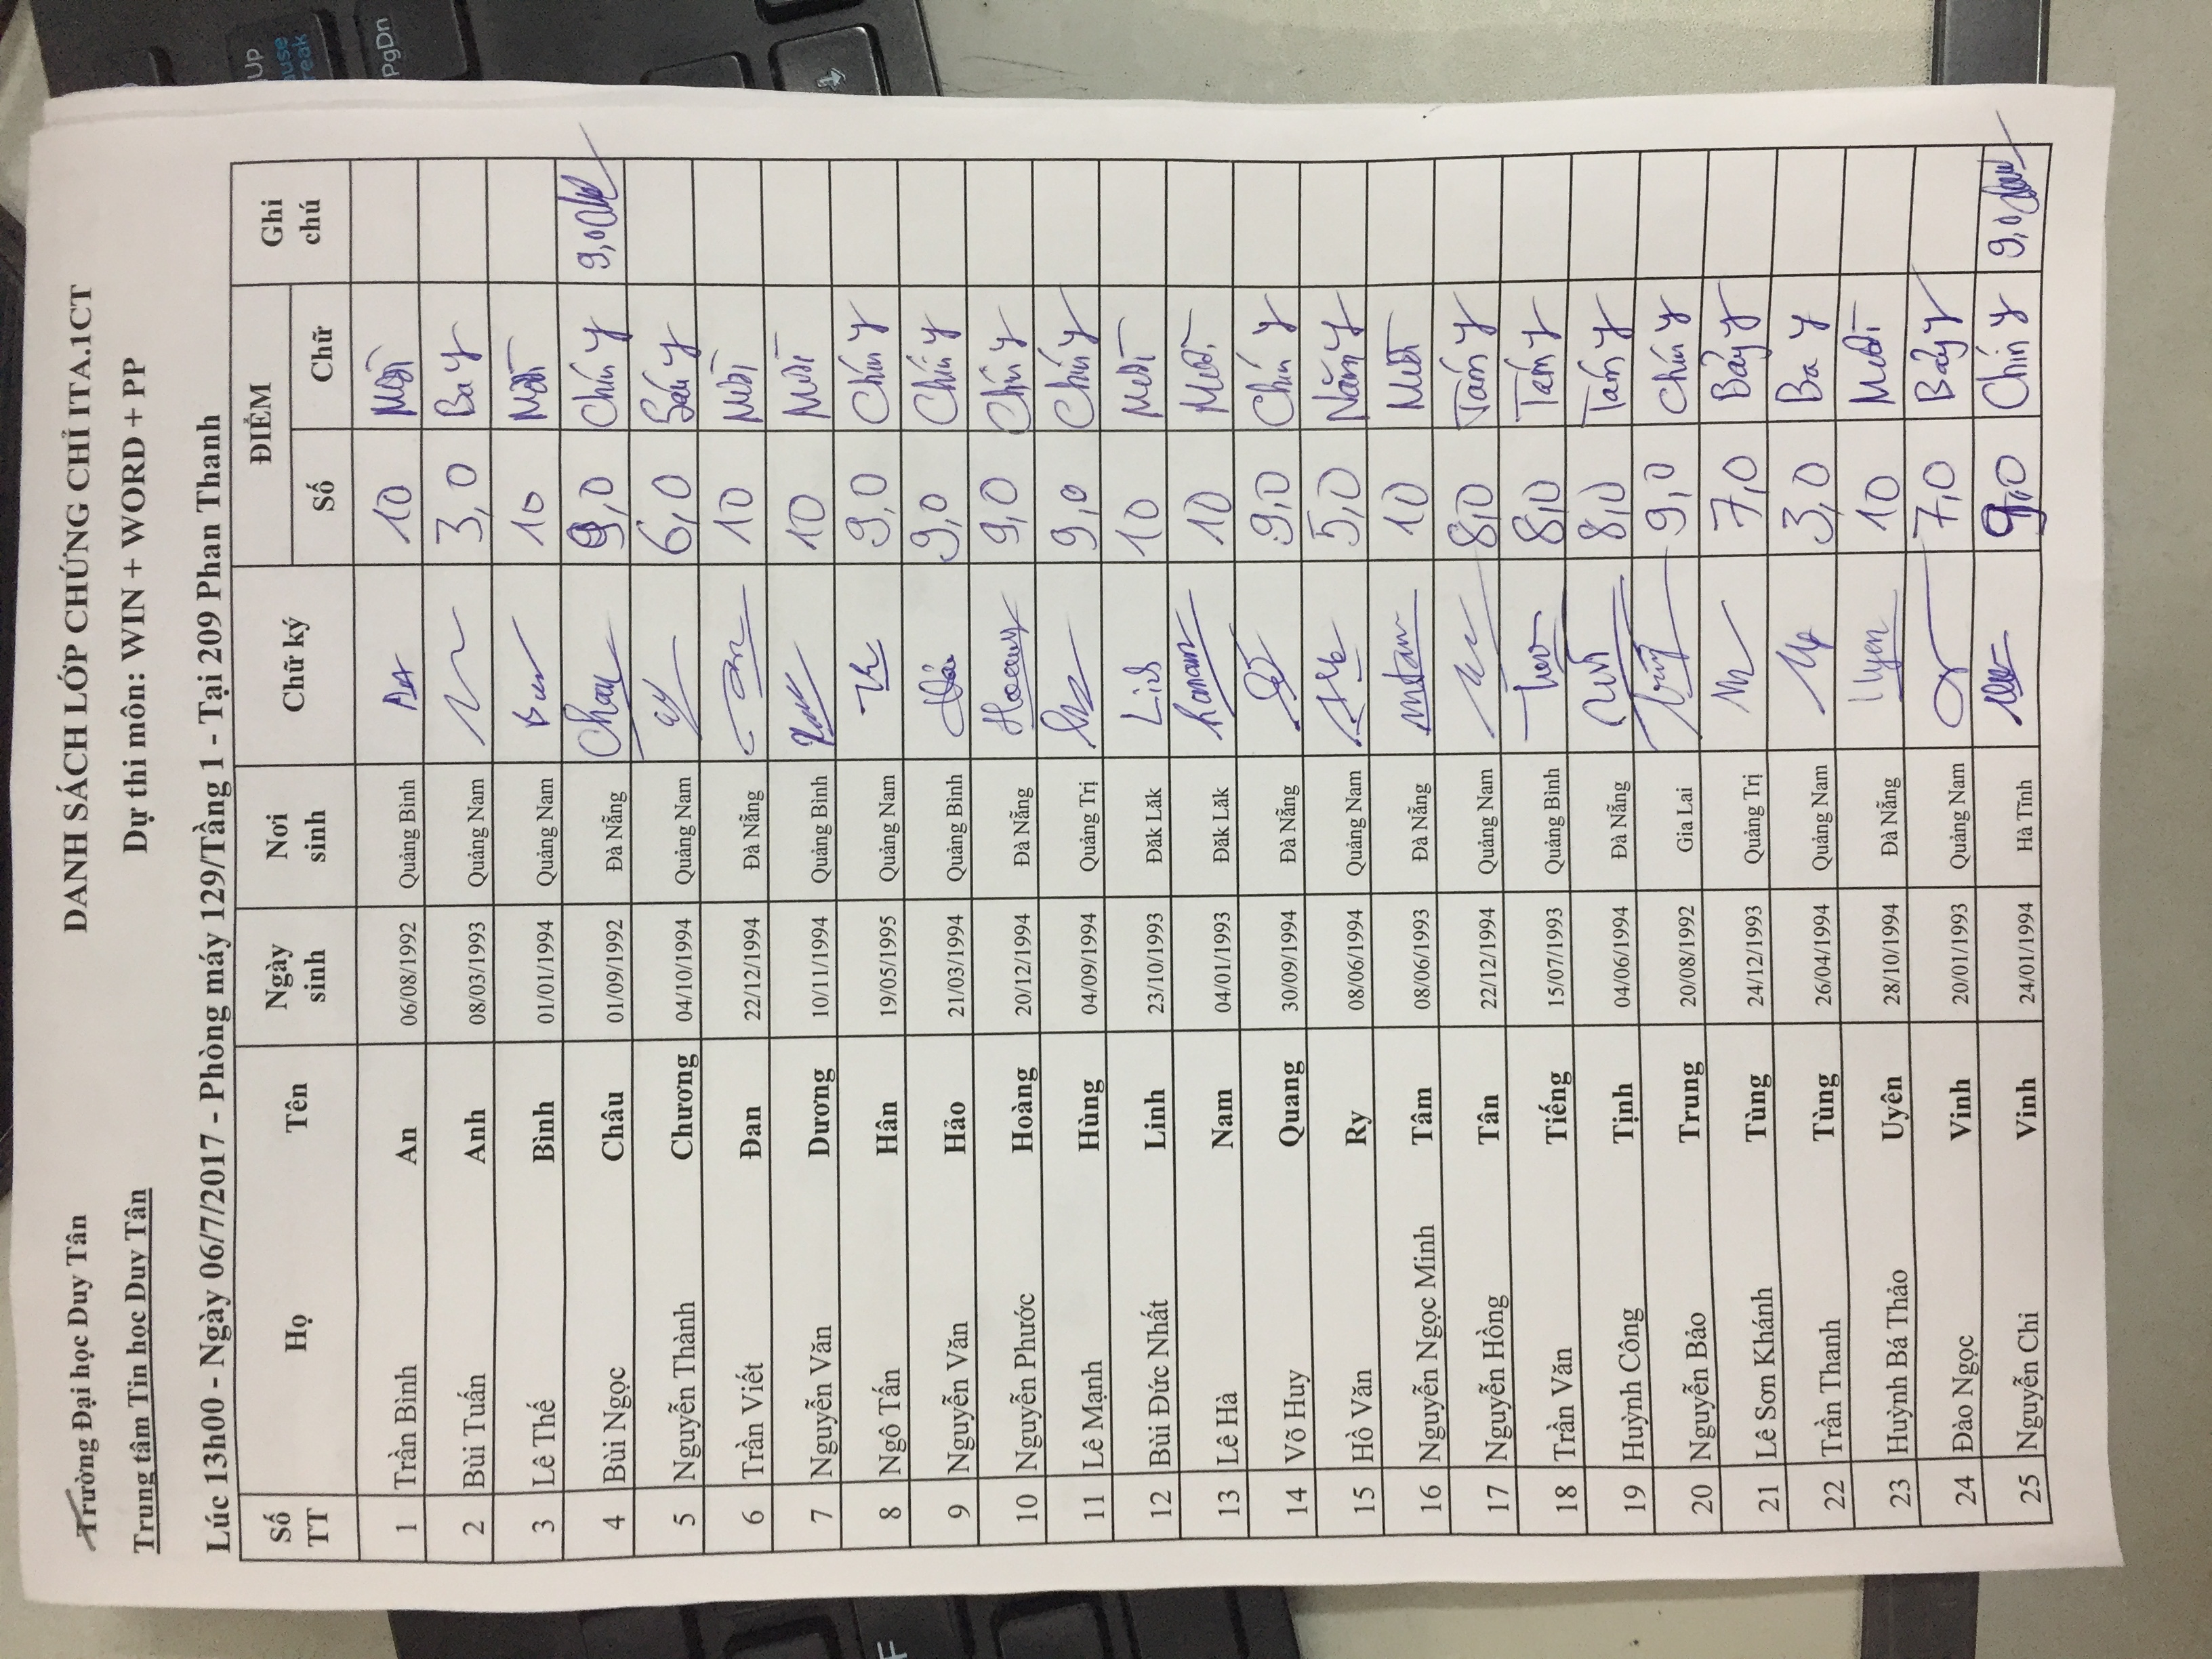 Trường Đại học Duy Tân
DANH SÁCH LỚP CHỨNG CHỈ ITA.1CT
Trung tâm Tin học Duy Tân
Dự thi môn: WIN + WORD + PP
Lúc 13h00 - Ngày 06/7/2017 - Phòng máy 129/Tầng 1 - Tại 209 Phan Thanh
Số TT Họ Tên Ngày sinh Nơi sinh Chữ ký ĐIỂM Ghi chú
Số Chữ
1 Trần Bình An 06/08/1992 Quảng Bình 10 Mười
2 Bùi Tuấn Anh 08/03/1993 Quảng Nam 3,0 Ba y
3 Lê Thế Bình 01/01/1994 Quảng Nam 10 Mười
4 Bùi Ngọc Châu 01/09/1992 Đà Nẵng Chau 9,0 Chín y 9,0
5 Nguyễn Thành Chương 04/10/1994 Quảng Nam 6,0 Sáu y
6 Trần Viết Đan 22/12/1994 Đà Nẵng 10 Mười
7 Nguyễn Văn Dương 10/11/1994 Quảng Bình 10 Mười
8 Ngô Tấn Hân 19/05/1995 Quảng Nam 9,0 Chín y
9 Nguyễn Văn Hảo 21/03/1994 Quảng Bình 9,0 Chín y
10 Nguyễn Phước Hoàng 20/12/1994 Đà Nẵng Hoang 9,0 Chín y
11 Lê Mạnh Hùng 04/09/1994 Quảng Trị 9,0 Chín y
12 Bùi Đức Nhất Linh 23/10/1993 Đăk Lăk 10 Mười
13 Lê Hà Nam 04/01/1993 Đăk Lăk 10 Mười
14 Võ Huy Quang 30/09/1994 Đà Nẵng 9,0 Chín y
15 Hồ Văn Ry 08/06/1994 Quảng Nam 5,0 Năm y
16 Nguyễn Ngọc Minh Tâm 08/06/1993 Đà Nẵng mtam 10 Mười
17 Nguyễn Hồng Tân 22/12/1994 Quảng Nam 8,0 Tám y
18 Trần Văn Tiếng 15/07/1993 Quảng Bình 8,0 Tám y
19 Huỳnh Công Tịnh 04/06/1994 Đà Nẵng 8,0 Tám y
20 Nguyễn Bảo Trung 20/08/1992 Gia Lai 9,0 Chín y
21 Lê Sơn Khánh Tùng 24/12/1993 Quảng Trị 7,0 Bảy y
22 Trần Thanh Tùng 26/04/1994 Quảng Nam 3,0 Ba y
23 Huỳnh Bá Thảo Uyên 28/10/1994 Đà Nẵng Uyen 10 Mười
24 Đào Ngọc Vinh 20/01/1993 Quảng Nam 7,0 Bảy
25 Nguyễn Chi Vinh 24/01/1994 Hà Tĩnh 9,0 Chín y 9,0